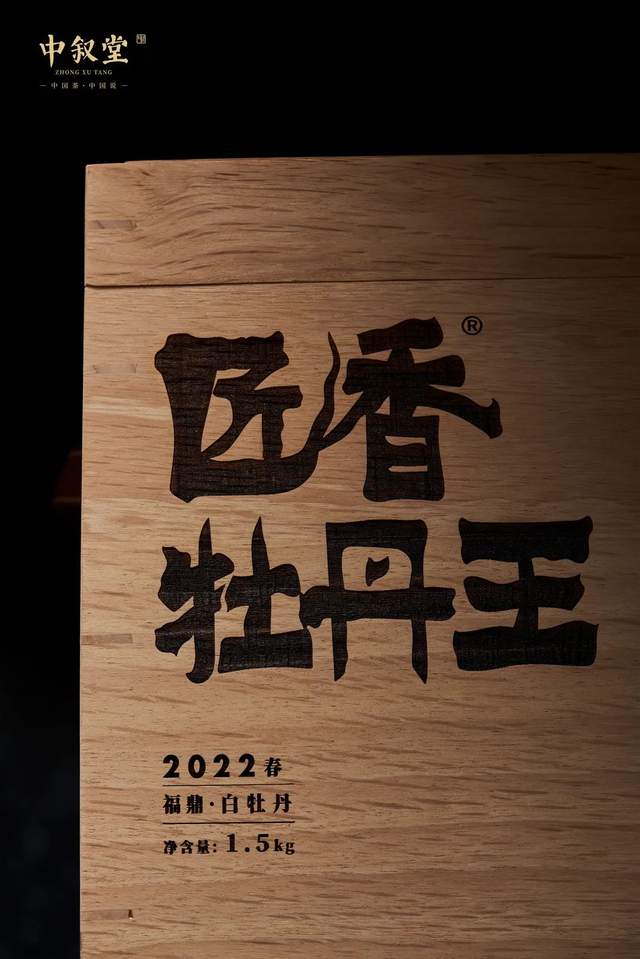 中叙堂
ZHONG XU TANG
中国茶·中国说
匠香®
牡丹王
2022春
福鼎·白牡丹
净含量: 1.5kg